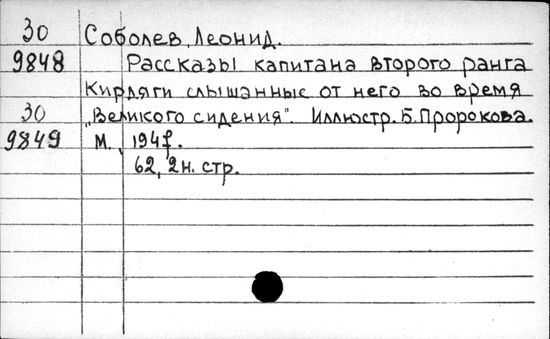 30 Соболев, Леонид.
9848 Рассказы капитана второго ранга
Кирдяги слышанные от него во время
30 „Великого сидения". Иллюстр. Б. Пророкова.
9849 М., 1947.
62, 2н. стр.